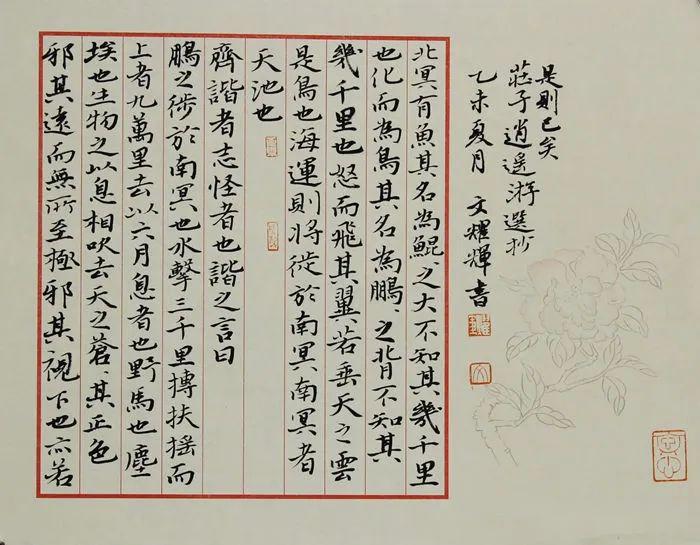 北冥有魚其名為鯤、之大不知其幾千里
也化而為鳥其名為鵬、之背不知其
幾千里也怒而飛其翼若垂天之雲
是鳥也海運則將徙於南冥南冥者
天池也
齊諧者志怪者也諧之言曰
鵬之徙於南冥也水擊三千里摶扶搖而
上者九萬里去以六月息者也野馬也塵
埃也生物之以息相吹去天之蒼、其正色
邪其遠而無所至極邪其視下也亦若
是則已矣
莊子逍遙游選抄
乙未夏月 文耀輝書